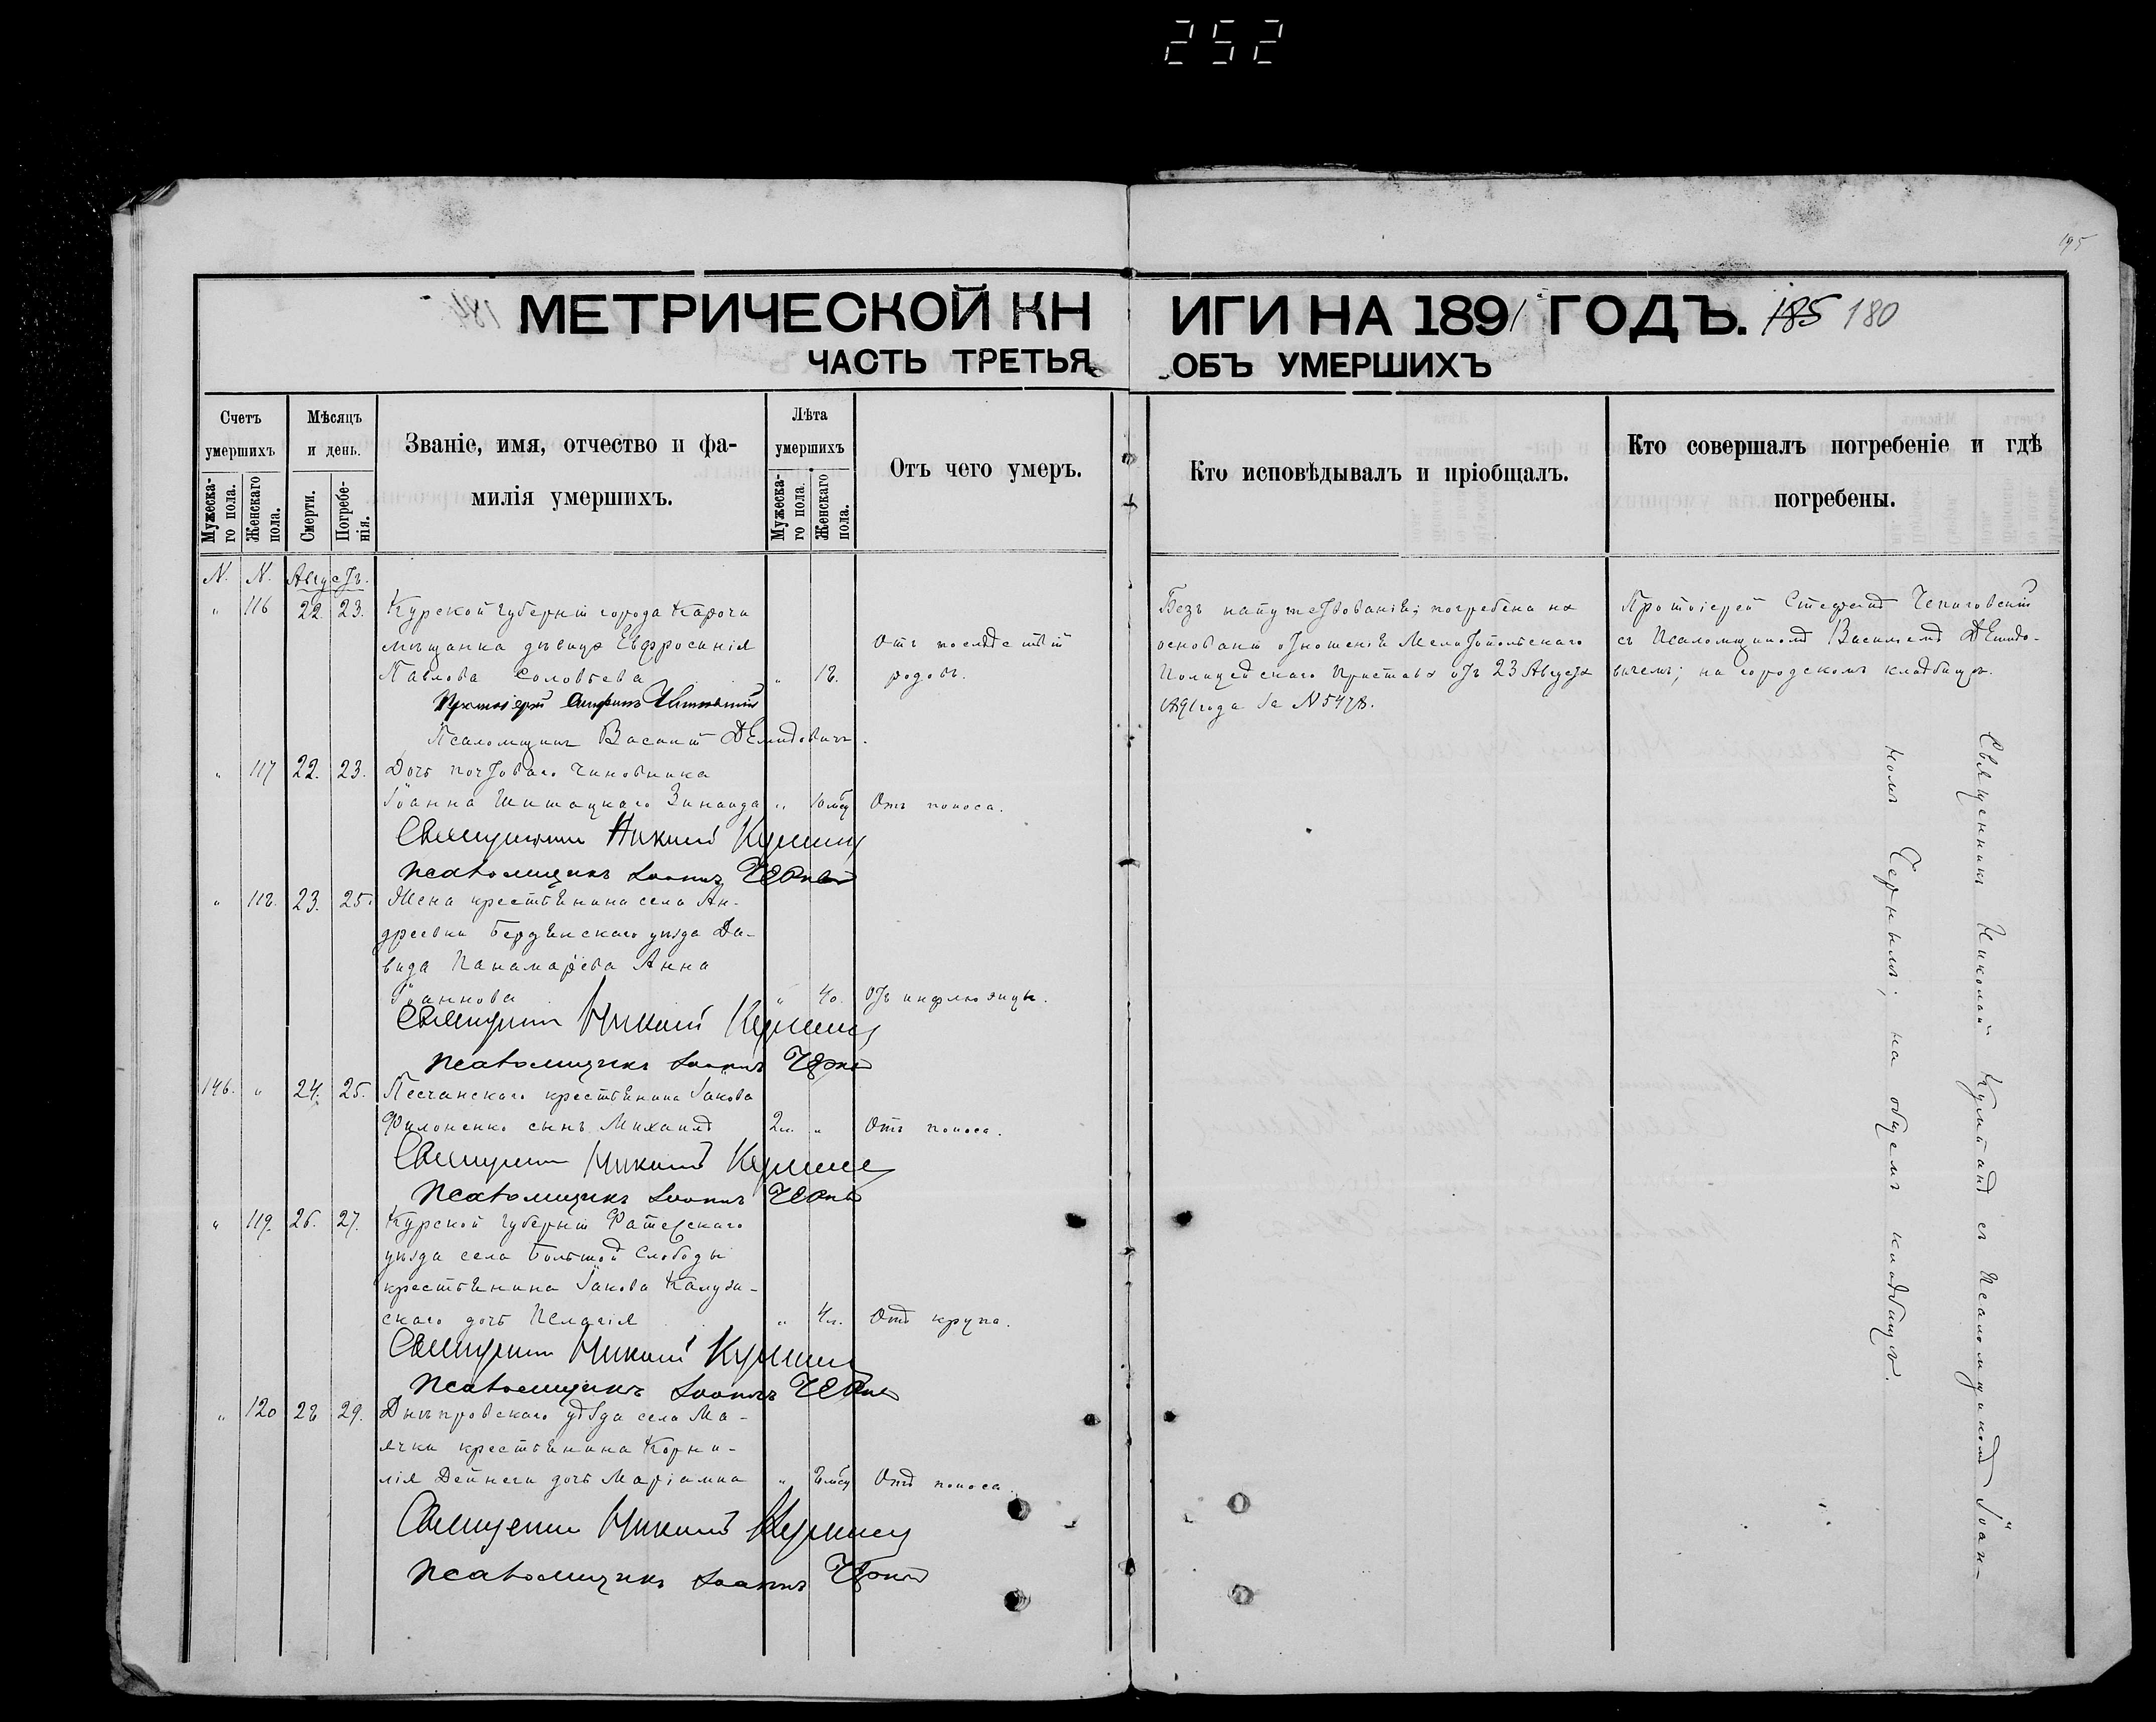 252
195
МЕТРИЧЕСКОЙ КНИГИ НА 1891 ГОДЪ. 185 180
ЧАСТЬ ТРЕТЬЯ ОБЪ УМЕРШИХЪ
Счетъ умершихъ
Мужеска-го пола.
Женскаго пола.
Мѣсяцъ и день.
Смерти.
Погребе-нія.
Званіе, имя, отчество и фа-
милія умершихъ.
Лѣта умершихъ
Мужеска-го пола.
Женскаго пола.
Отъ чего умеръ.
Кто исповѣдывалъ и пріобщалъ.
Кто совершалъ погребеніе и гдѣ
погребены.
N. N. Августъ.
" 116 22. 23. Курской губерніи города Карочи
мѣщанка дѣвица Евфросинія
Павлова Соловьева " 18.
Отъ послѣдствій
родовъ.
Безъ напутствованія; погребена на
основаніи отношенія Мелитопольскаго
Полицейскаго Пристава отъ 23 Августа
1891 года за N 5478.
Протоіерей Стефанъ
съ Псаломщикомъ Василіемъ Демидо-
вичемъ; на городскомъ кладбищѣ.
Протоіерей Стефанъ
Псаломщикъ Василій Демидовичъ.
" 117 22. 23. Дочь почтоваго чиновника
Іоанна Шишацкаго Зинаида " 10 мѣс Отъ поноса.
Священникъ Николай
Псаломщикъ Іоаннъ Черный
" 118. 23. 25. Жена крестьянина села Ан-
дреевки Бердянскаго уѣзда Да-
вида Панамарева Анна
Іоаннова " 40. Отъ инфлюэнцы.
Священникъ Николай
Псаломщикъ Іоаннъ Черный
146. " 24. 25. Песчанскаго крестьянина Іакова
Филоненко сынъ Михаилъ 2 л. " Отъ поноса.
Священникъ Николай
Псаломщикъ Іоаннъ Черный
" 119. 26. 27. Курской губерніи Фатежскаго
уѣзда села Большой Слободы
крестьянина Іакова Калуж-
скаго дочь Пелагія " 4 л. Отъ крупа.
Священникъ Николай
Псаломщикъ Іоаннъ Черный
" 120 28 29. Днѣпровскаго уѣзда села Ма-
ячки крестьянина Корни-
лія Дейнеги дочь Маріамна " 8 мѣс Отъ поноса.
Священникъ Николай
Псаломщикъ Іоаннъ Черный
Священникъ Николай съ Псаломщикомъ Іоан-
номъ Чернымъ; на общемъ кладбищѣ.